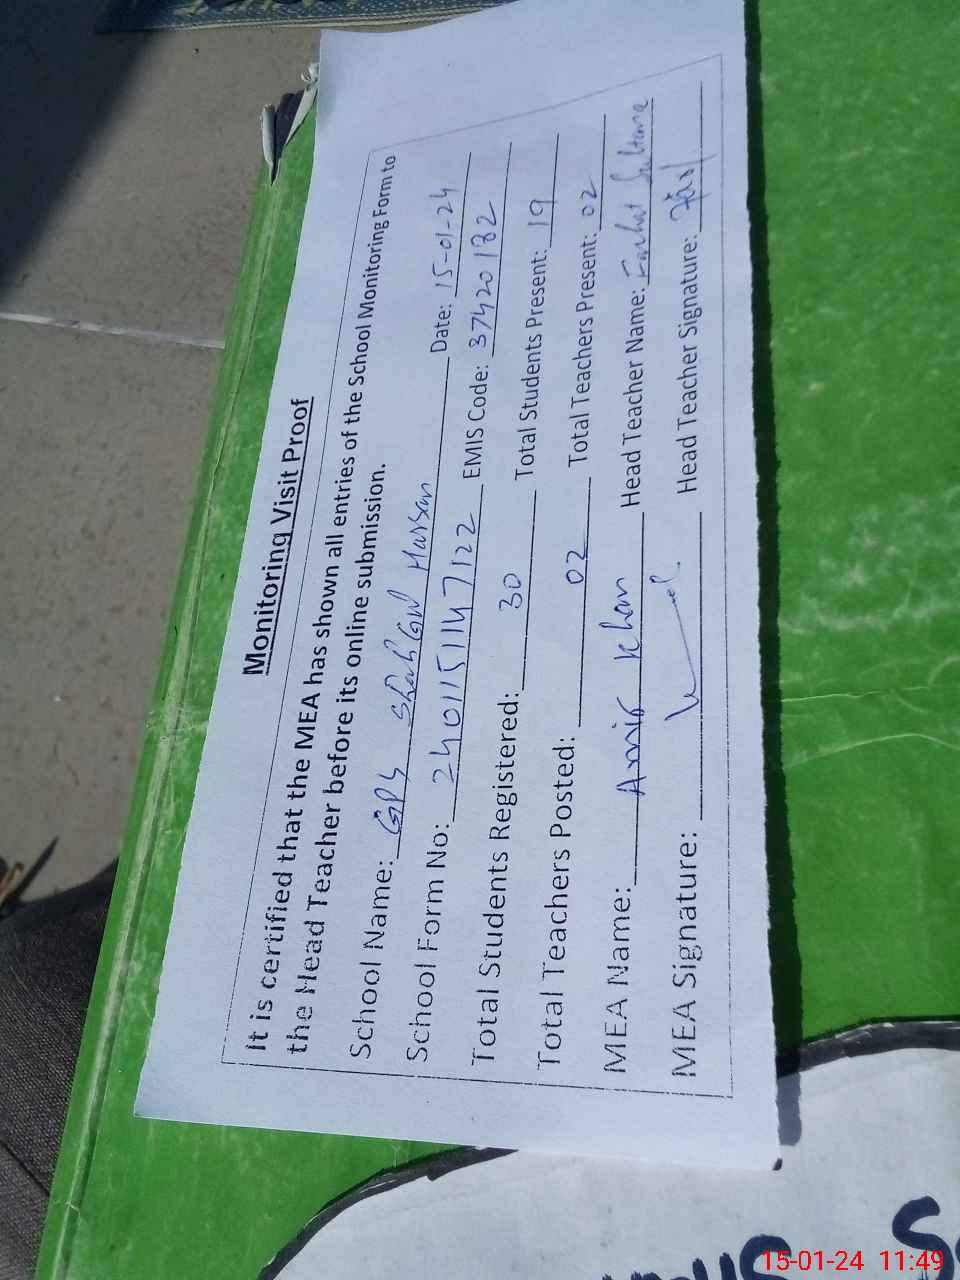 Monitoring Visit Proof
It is certified that the MEA has shown all entries of the School Monitoring Form to
the Head Teacher before its online submission.
School Name: GPS Shah Gul Hassan Date: 15-01-24
School Form No: 24011511147122 EMIS Code: 37420182
Total Students Registered: 30 Total Students Present: 19
Total Teachers Posted: 02 Total Teachers Present: 02
MEA Name: Amir Khan Head Teacher Name: Farhat Sultana
MEA Signature: Head Teacher Signature:
15-01-24 11:49